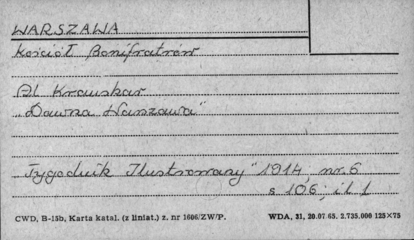 WARSZAWA
Kościół Bonifratrów
Al. Kraushar
„Dawna Warszawa”
„Tygodnik Ilustrowany” 1914, nr. 6
s 106; il. 1
CWD, B-15b, Karta katal. (z liniat.) z. nr 1606/ZW/P.
WDA, 31, 20.07.65. 2.735.000 125×75